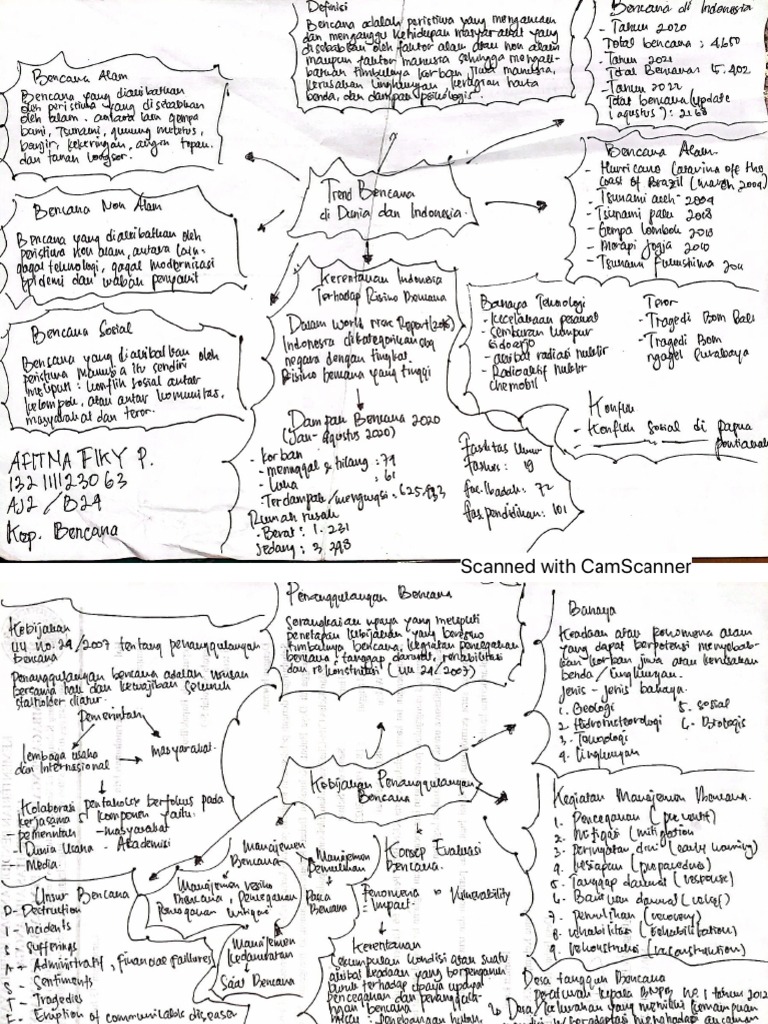 Definisi
Bencana adalah peristiwa yang mengancam
dan mengganggu kehidupan masyarakat yang
disebabkan oleh faktor alam atau non alam
maupun faktor manusia sehingga mengaki-
batkan timbulnya korban jiwa manusia,
kerusakan lingkungan, kerugian harta
benda, dan dampak psikologis.
Bencana di Indonesia
- Tahun 2020
Total bencana : 4.650
- Tahun 2021
Total Bencana: 5.402
- Tahun 2022
Total bencana (update
(agustus) : 2168
Bencana Alam
Bencana yang diakibatkan
oleh peristiwa yang disebabkan
oleh alam. antara lain gempa
bumi, Tsunami, gunung meletus,
banjir, kekeringan, angin topan.
dan tanah longsor.
Trend Bencana
di Dunia dan Indonesia.
Bencana Alam
- Hurricane Catarina off the
Coast of Brazil (march 2004)
- Tsunami aceh 2004
- Tsunami palu 2018
- Gempa Lombok 2018
- Merapi Jogja 2010
- Tsunami Fukushima 2011
Bencana Non Alam
Bencana yang diakibatkan oleh
peristiwa non alam, antara lain.
gagal teknologi, gagal modernisasi
epidemi dan wabah penyakit
Bencana Sosial
Bencana yang diakibatkan oleh
peristiwa manusia itu sendiri
meliputi : konflik sosial antar
kelompok, atau antar komunitas,
masyarakat dan teror.
Kerentanan Indonesia
Terhadap Risiko Bencana
Dalam World Risk Report (2016)
Indonesia dikategorikan sbg
negara dengan tingkat
Risiko bencana yang tinggi
Dampak Bencana 2020
(Jan - agustus 2020)
- korban
- meninggal & hilang : 79
- Luka : 61
- Terdampak / mengungsi : 625.
Rumah rusak
- Berat : 1. 231
Sedang : 3. 248
Fasilitas Umum
Faskes : 19
Fac. Ibadah : 72
Fas. pendidikan : 101
Bahaya Teknologi
- kecelakaan pesawat
- semburan lumpur
sidoarjo
- akibat radiasi nuklir
- Radioaktif nuklir
chernobil
Teror
- Tragedi Bom Bali
- Tragedi Bom
ngagel Surabaya
Konflik
- Konflik Sosial di Papua
pontianak
AFITNA FIKY P.
132111123063
AJ2 / B24
Kep. Bencana
Scanned with CamScanner
Kebijakan
UU no. 24 /2007 tentang penanggulangan
Bencana
Penanggulangan bencana adalah urusan
bersama hak dan kewajiban seluruh
stakholder diatur.
Pemerintah
Lembaga usaha
dan Internasional
masyarakat.
Kolaborasi pentaholix berfokus pada
kerjasama 5 komponen yaitu.
- pemerintah - masyarakat
- Dunia Usaha - Akademisi
- Media.
Penanggulangan Bencana
Serangkaian upaya yang meliputi
penetapan kebijakan yang beresiko
timbulnya bencana, kegiatan pencegahan
bencana, tanggap darurat, rehabilitasi
dan rekonstruksi (UU 24/2007)
Bahaya
Keadaan atau fenomena alam
yang dapat berpotensi menyebab-
kan korban jiwa atau kerusakan
benda / Lingkungan.
Jenis - jenis bahaya.
1. Geologi
2. Hidrometeorologi
3. Teknologi
4. Lingkungan
5. Sosial
6. Biologis
Kebijakan Penanggulangan
Bencana
Manajemen
Bencana
Manajemen
Pemulihan
Konsep Evaluasi
Bencana.
Manajemen resiko
Bencana, Pencegahan
Pasca
Bencana
Manajemen
Kedaruratan
Saat Bencana
Fenomena
Impact.
Vulnerability
Kerentanan
Sekumpulan kondisi atau suatu
akibat keadaan yang berpengaruh
buruk terhadap upaya upaya
pencegahan dan penanggula-
ngan bencana
Kegiatan Manajemen Bencana.
1. Pencegahan (prevent)
2. mitigasi (mitigation
3. Peringatan dini (early warning)
4. kesiapan (preparednes)
5. Tanggap darurat (response)
6. Bantuan darurat (relief)
7. Pemulihan (recovery)
8. rehabilitasi (rehabilitation)
9. rekonstruksi (reconstruction)
Unsur Bencana
D - Destruction
I - Incidents
S - Sufferings
A - Administratif, Financial failures
S - Sentiments
T - Tragedies
E - Eruption of communicable diseases
Desa tangguh Bencana
Peraturan kepala BNPB no. 1 tahun 2012
Desa / kelurahan yang memiliki kemampuan